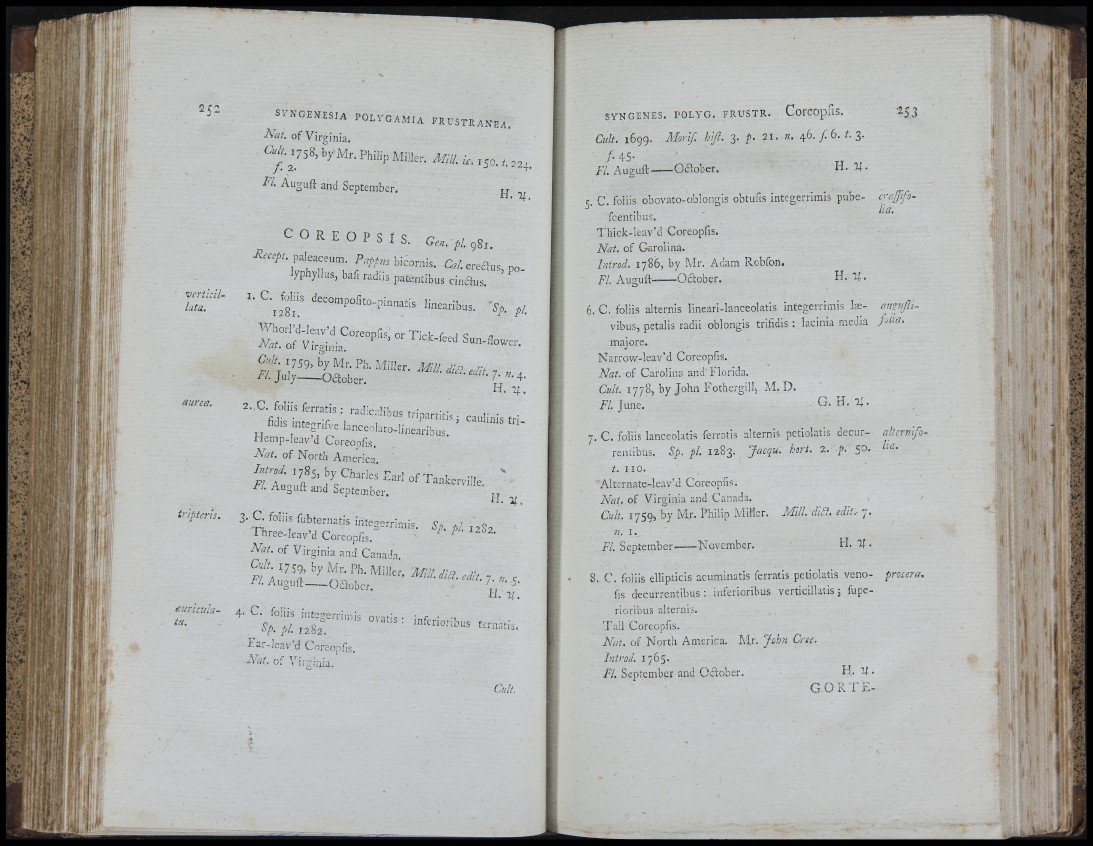 252
SYNGENESIA POLYGAMIA FRUSTRANEA.
Nat. of Virginia.
Cult. 1758, by Mr. Philip Miller. Mill. ic. 150. t. 224.
f. 2.
Fl. Auguſt and September. H. ♃.
COREOPSIS. Gen. pl. 981.
Recept. paleaceum. Pappus bicornis. Cal. erectus, po-
lyphyllus, baſi radiis patentibus cinctus.
verticil-
lata.
1. C. foliis decompoſito-pinnatis linearibus. Sp. pl.
1281.
Whorl'd-leav'd Coreopſis, or Tick-ſeed Sun-flower.
Nat. of Virginia.
Cult. 1759, by Mr. Ph. Miller. Mill. dict. edit. 7. n. 4.
Fl. July——October. H. ♃.
aurea.
2. C. foliis ſerratis : radicalibus tripartitis ; caulinis tri-
fidis integriſve lanceolato-linearibus.
Hemp-leav'd Coreopſis.
Nat. of North America.
Introd. 1785, by Charles Earl of Tankerville.
Fl. Auguſt and September. H. ♃.
tripteris.
3. C. foliis ſubternatis integerrimis. Sp. pl. 1282.
Three-leav'd Coreopſis.
Nat. of Virginia and Canada.
Cult. 1759, by Mr. Ph. Miller. Mill. dict. edit. 7. n. 5.
Fl. Auguſt——October. H. ♃.
auricula-
ta.
4. C. foliis integerrimis ovatis : inferioribus ternatis.
Sp. pl. 1282.
Ear-leav'd Coreopſis.
Nat. of Virginia.
Cult.
SYNGENES. POLYG. FRUSTR. Coreopſis. 253
Cult. 1699. Moriſ. hiſt. 3. p. 21. n. 46. ſ. 6. t. 3.
f. 45.
Fl. Auguſt——October. H. ♃.
5. C. foliis obovato-oblongis obtuſis integerrimis pube-
ſcentibus.
craſſifo-
lia.
Thick-leav'd Coreopſis.
Nat. of Carolina.
Introd. 1786, by Mr. Adam Robſon.
Fl. Auguſt——October. H. ♃.
6. C. foliis alternis lineari-lanceolatis integerrimis læ-
vibus, petalis radii oblongis trifidis : lacinia media
majore.
anguſti-
folia.
Narrow-leav'd Coreopſis.
Nat. of Carolina and Florida.
Cult. 1778, by John Fothergill, M. D.
Fl. June. G. H. ♃.
7. C. foliis lanceolatis ſerratis alternis petiolatis decur-
rentibus. Sp. pl. 1283. Jacqu. hort. 2. p. 50.
t. 110.
alternifo-
lia.
Alternate-leav'd Coreopſis.
Nat. of Virginia and Canada.
Cult. 1759, by Mr. Philip Miller. Mill. dict. edit. 7.
n. 1.
Fl. September——November. H. ♃.
8. C. foliis ellipticis acuminatis ſerratis petiolatis veno-
ſis decurrentibus : inferioribus verticillatis ; ſupe-
rioribus alternis.
procera.
Tall Coreopſis.
Nat. of North America. Mr. John Cree.
Introd. 1765.
Fl. September and October. H. ♃.
GORTE-